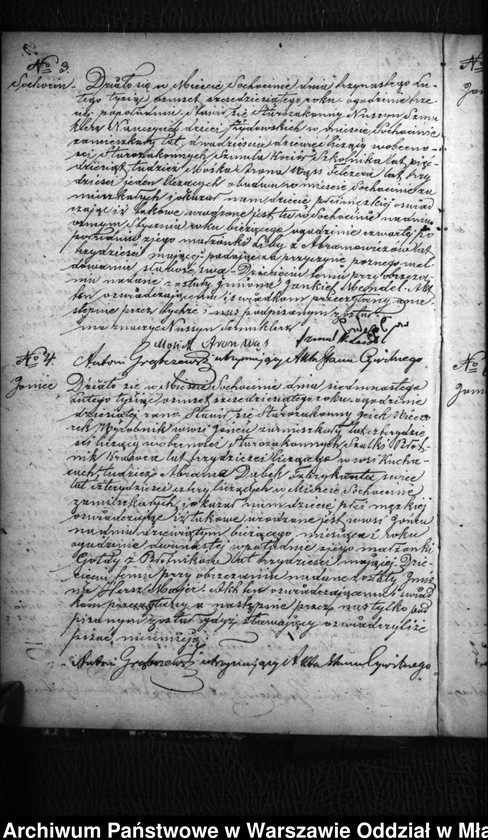 No 3.
Sochocin
Działo się w Mieście Sochocinie dnia trzynastego Lu-
tego tysiąc ośmset sześdziesiątego roku o godzinie trze-
ciej popołudniu Stawił się Starozakonny Nussyn Szmu
klerz Nauczyciel dzieci Żydowskich w mieście Sochocinie
zamieszkały lat dwadzieścia dziewięć liczący w obecno-
ści Starozakonnych Szmula Szkolnika lat pięć-
dziesiąt tudzież Moska Arona Wąs lat trzy
dzieści jeden liczących obudwu w mieście Sochocinie za
mieszkałych i okazał nam dziecię płci męzkiej oświad
czając iż takowe urodzone jest tu w Sochocinie na dniu
ósmym Stycznia roku bieżącego o godzinie czwartej po
południu z jego małżonki z Abramowiczów lat
trzydzieści mającej
Dziecięciu temu przy obrzeza-
niu nadane zostały Imiona Jankiel Mendel Akt
ten oświadczającemu i świadkom przeczytany a na-
stępnie przez tychże i nas podpisanym został
ma znaczyć Nussyn Szmuklerz
Mosik Aron Wąs
Antoni utrzymujący Akta Stanu Cywilnego
No 4.
Działo się w Mieście Sochocinie dnia siedmnastego
Lutego tysiąc ośmset sześdziesiątego roku o godzinie
dziesiątej rano Stawił się Starozakonny Icek Wieczo
rek Wyrobnik w wsi zamieszkały lat czterdzie
ści liczący w obecności Starozakonnych Płot-
nik Krawca lat trzydzieści liczącego w wsi Kucha-
rach, tudzież Abrama Dałek Fabrykanta
lat czterdzieści cztery liczących w Mieście Sochocinie
zamieszkałych i okazał nam dziecię płci męzkiej
oświadczając iż takowe urodzone jest w wsi
na dniu dziewiątym bieżącego miesiąca i roku
o godzinie dwunastej w południe z jego małżonki
Gołdy z Płotników lat trzydzieści mającej Dzie-
cięciu temu przy obrzezaniu nadane zostały Imio
na Hersz Majer. Akt ten oświadczającemu i świad
kom przeczytany a następnie przez nas tylko pod
pisanym został gdyż stawający oświadczyli że
pisać nieumieją
Antoni utrzymujący Akta Stanu Cywilnego
Archiwum Państwowe w Warszawie Oddział w Mła